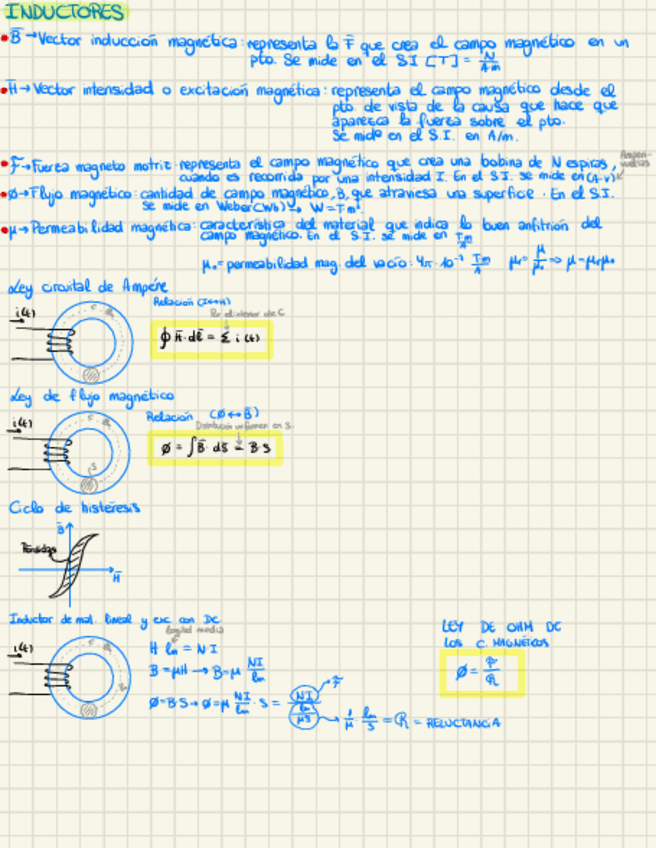 INDUCTORES
• B̄ → Vector inducción magnética: representa la F̄ que crea el campo magnético en un
pto. Se mide en el SI [T] = N/A·m
• H̄ → Vector intensidad o excitación magnética: representa el campo magnético desde el
pto. de vista de la causa que hace que
aparezca la fuerza sobre el pto.
Se mide en el S.I. en A/m.
• F → Fuerza magneto motriz: representa el campo magnético que crea una bobina de N espiras,
cuando es recorrida por una intensidad I. En el S.I. se mide en (A·v)
Amperi-vueltas
• Ø → Flujo magnético: cantidad de campo magnético, B, que atraviesa una superficie. En el S.I.
se mide en Weber (Wb) → W = T·m²
• μ → Permeabilidad magnética: característica del material que indica lo buen anfitrión del
campo magnético. En el S.I. se mide en T·m/A
μ₀ = permeabilidad mag. del vacío: 4π · 10⁻⁷ T·m/A μr = μ/μ₀ ⇒ μ = μr·μ₀
Ley circuital de Ampére
i(t)
Relación (I↔H)
Por el interior de C
∮ H̄ · dl̄ = Σ i(t)
Ley de flujo magnético
i(t)
S
Relación (Ø ↔ B̄)
Distribución uniforme en S.
Ø = ∫ B̄ · ds̄ = B·S
Ciclo de histéresis
B̄
Pérdidas
H̄
Inductor de mat. lineal y exc. con DC
i(t)
longitud media
H lm = N·I
B = μH → B = μ NI/lm
Ø = B·S → Ø = μ NI/lm · S = NI/(lm/μS) → F
→ 1/μ · lm/S = R = RELUCTANCIA
LEY DE OHM DE
LOS C. MAGNÉTICOS
Ø = F/R